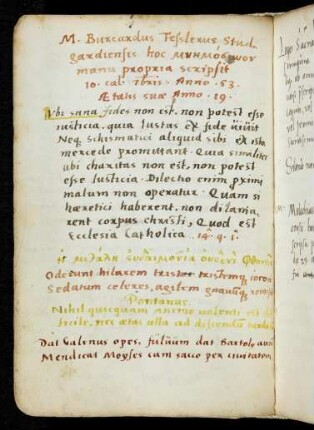 M. Burcardus Tesslerus Stud.
gardiensis hoc μνημόσυνον
manu propria scripsit
10. cal. Anno. 53.
Ætatis suæ Anno. 19.
Vbi sana fides non est, non potest esse
iusticia, quia Iustus ex fide uiuit
Neq. schismatici aliquid sibi ex ista
mercede promittant. Quia similiter
ubi charitas non est, non potest
esse Iusticia. Dilectio enim proximi
malum non operatur. Quam si
hæretici haberent, non dilania,
rent corpus christi, Quod est
Ecclesia Catholica. 14. q. 1.
Oderunt hilarem tristes tristemq; iocosi
Sedatum celeres, agilem gnauumq;
Pontanus.
Nihil quicquam animo uolenti est dif
ficile, nec ætas ulla ad discendum
Dat Galenus opes, fuluum dat Bartole aurum
Mendicat Moyses cum sacco per ciuitatem